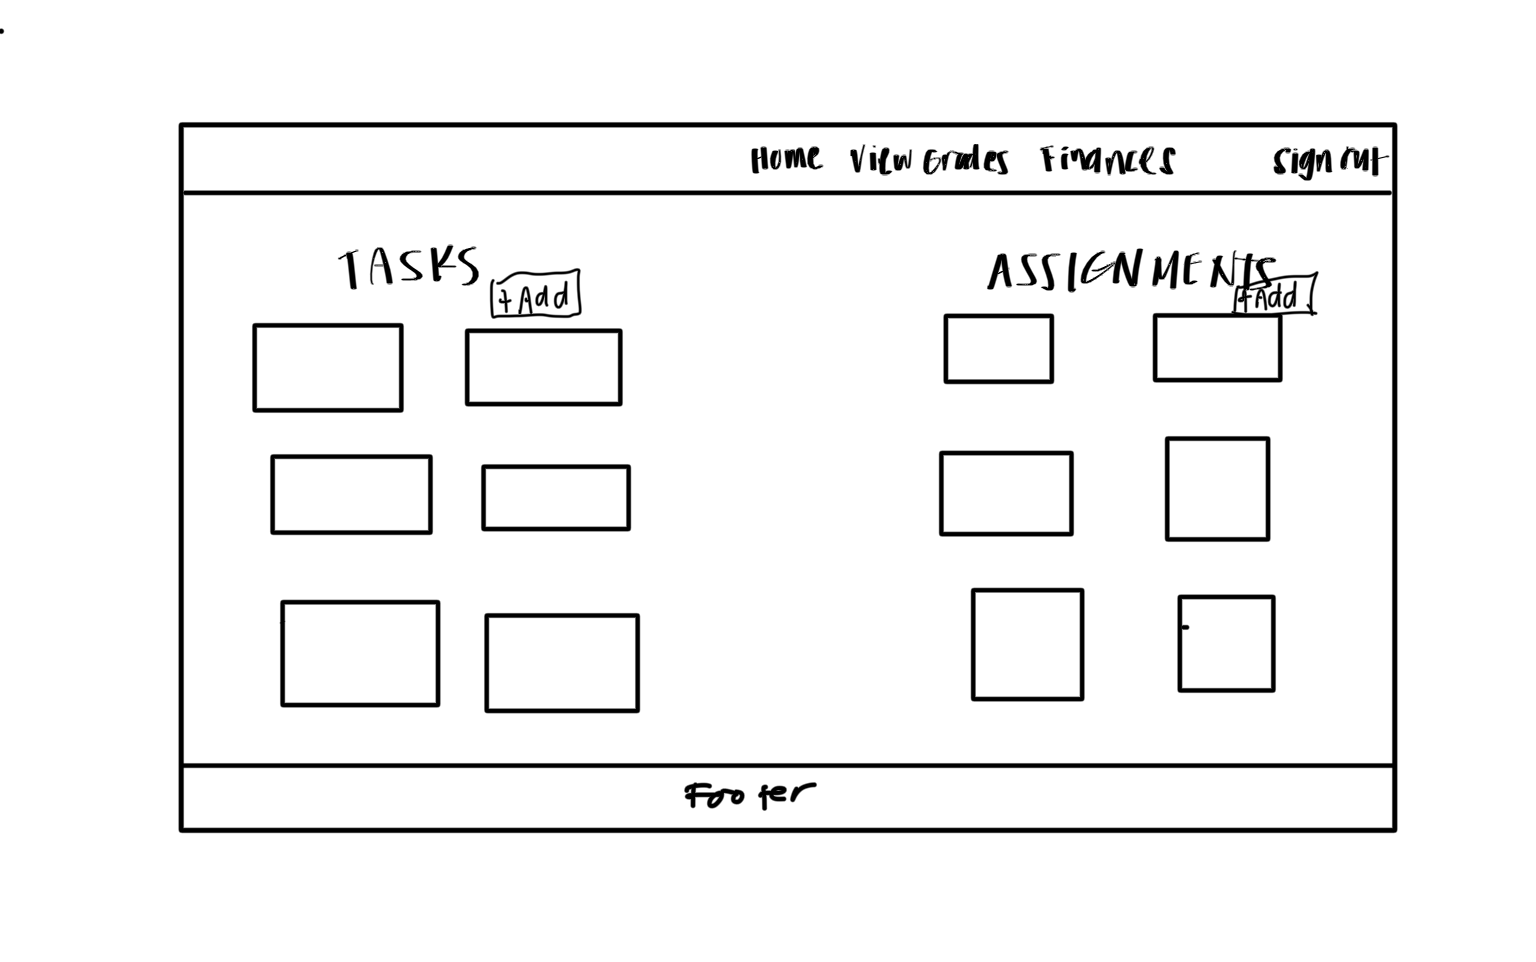 Home View Grades Finances Sign out
TASKS
+Add
ASSIGNMENTS
+Add
Footer